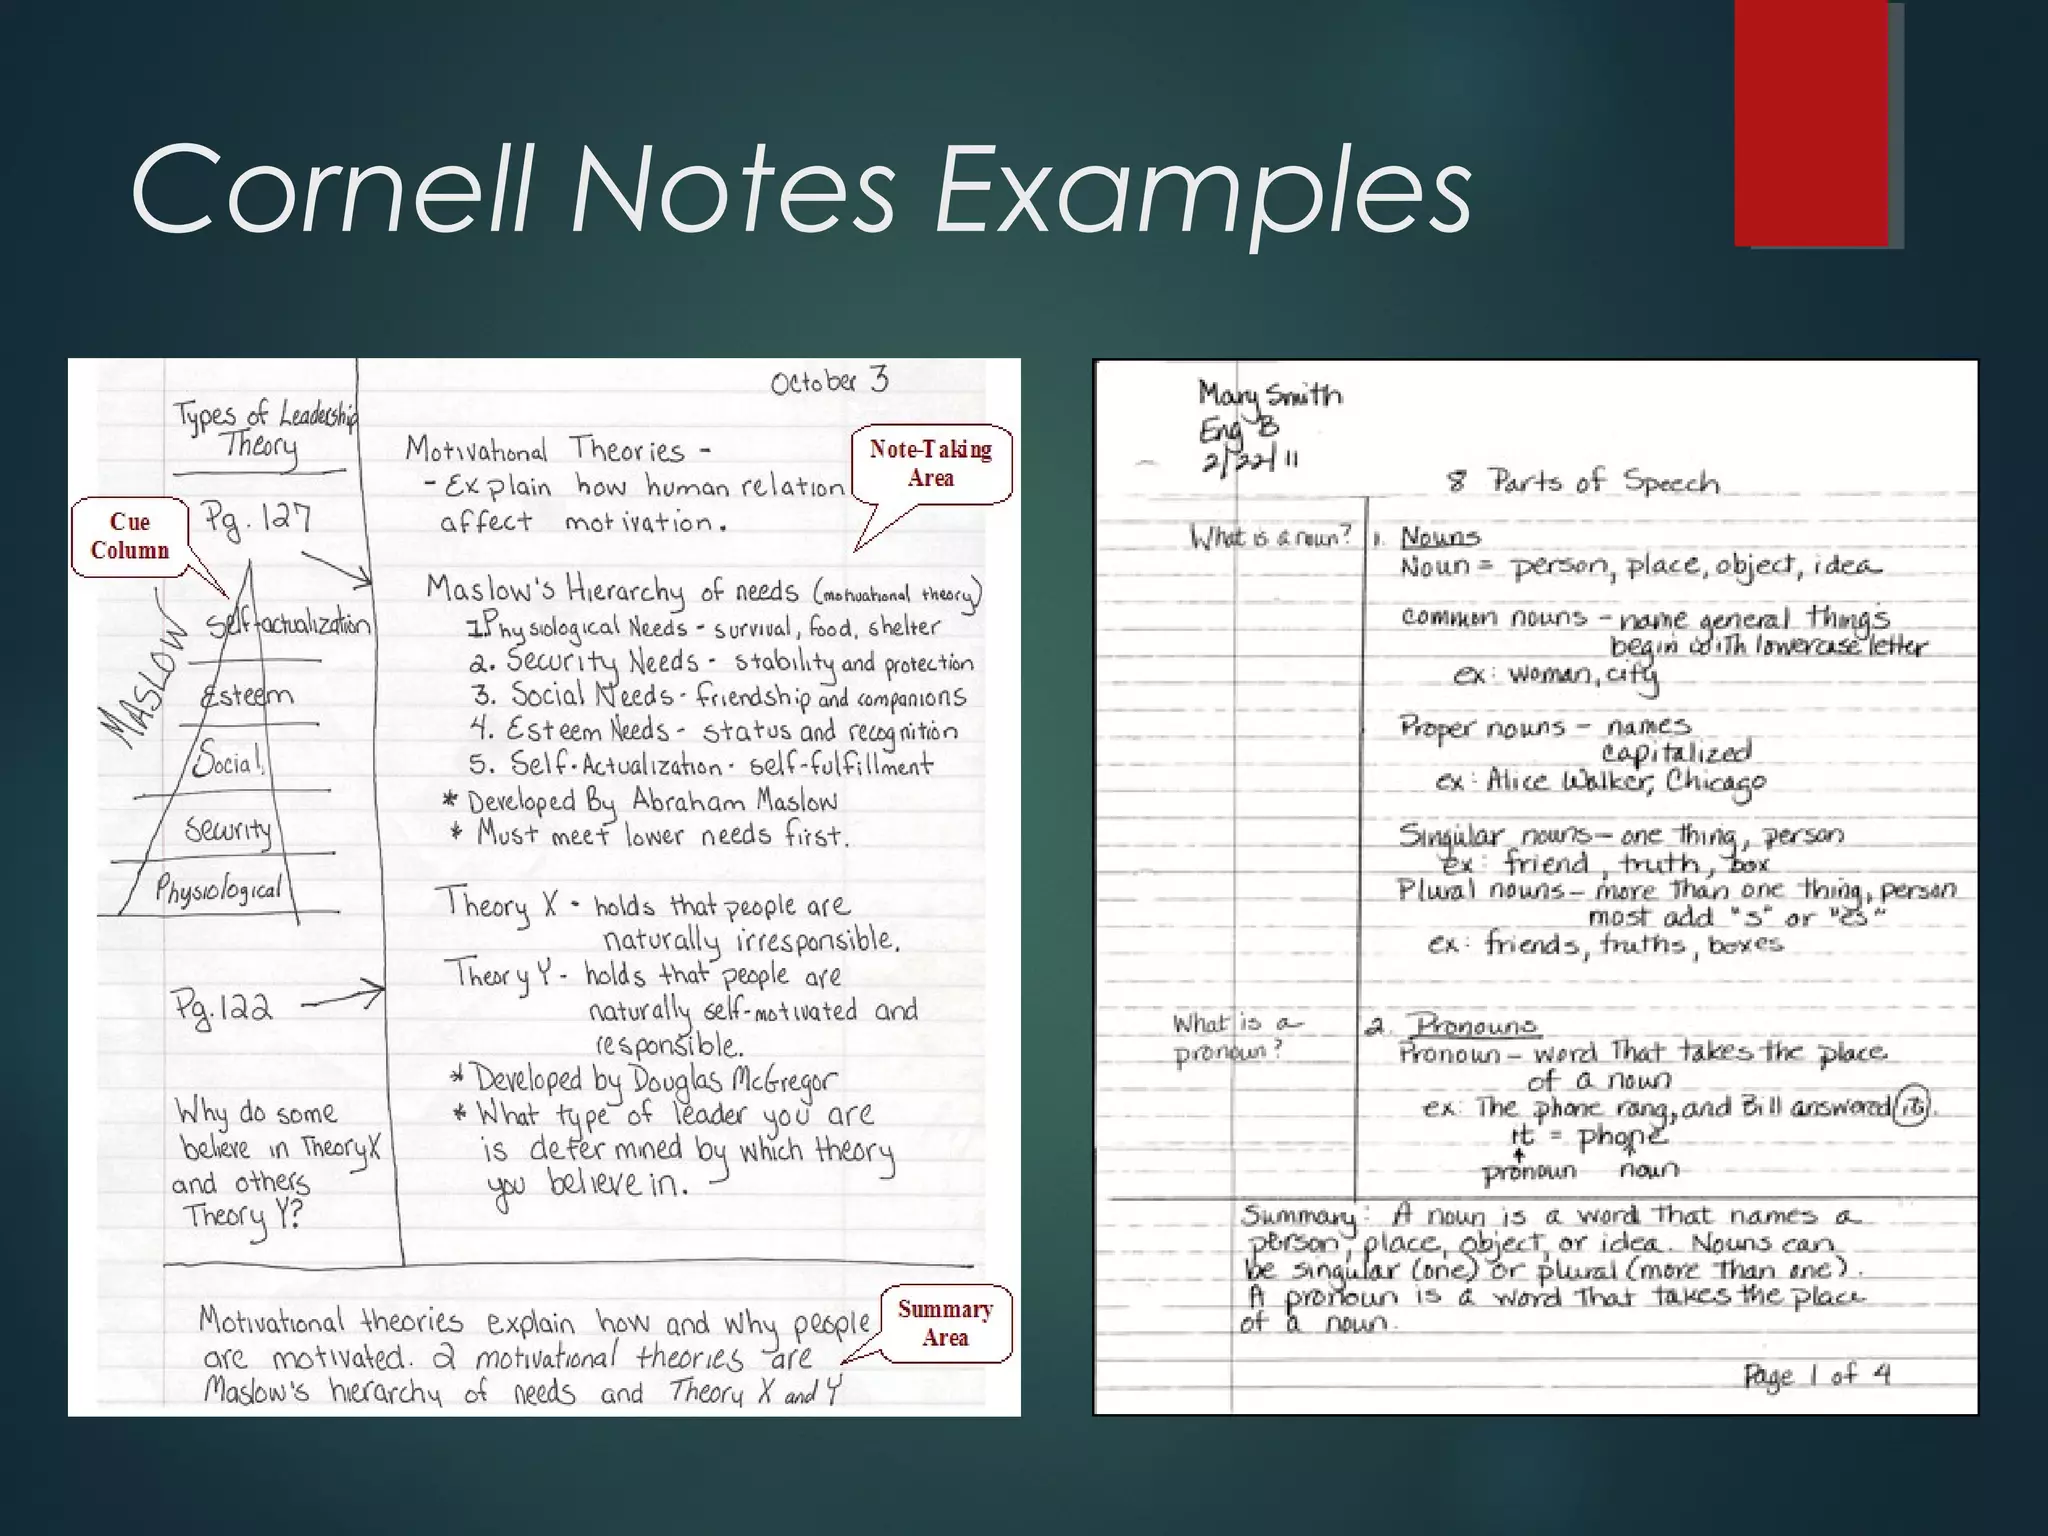 Cornell Notes Examples
October 3
Types of Leadership
Theory
Pg. 127
Cue
Column
MASLOW
Self-actualization
Esteem
Social
Security
Physiological
Pg. 122
Why do some
believe in Theory X
and others
Theory Y?
Note-Taking
Area
Motivational Theories -
- Explain how human relation
affect motivation.
Maslow's Hierarchy of needs (motivational theory)
1. Physiological Needs - survival, food, shelter
2. Security Needs - stability and protection
3. Social Needs - friendship and companions
4. Esteem Needs - status and recognition
5. Self-Actualization - self-fulfillment
* Developed By Abraham Maslow
* Must meet lower needs first.
Theory X - holds that people are
naturally irresponsible.
Theory Y - holds that people are
naturally self-motivated and
responsible.
* Developed by Douglas McGregor
* What type of leader you are
is determined by which theory
you believe in.
Summary
Area
Motivational theories explain how and why people
are motivated. 2 motivational theories are
Maslow's hierarchy of needs and Theory X and Y
Mary Smith
Eng B
2/22/11
8 Parts of Speech
What is a noun?
1. Nouns
Noun = person, place, object, idea
Common nouns - name general things
begin with lowercase letter
ex: woman, city
Proper nouns - names
capitalized
ex: Alice Walker, Chicago
Singular nouns - one thing, person
ex: friend, truth, box
Plural nouns - more than one thing, person
most add "s" or "es"
ex: friends, truths, boxes
What is a
pronoun?
2. Pronouns
Pronoun - word that takes the place
of a noun
ex: The phone rang, and Bill answered it.
it = phone
pronoun noun
Summary: A noun is a word that names a
person, place, object, or idea. Nouns can
be singular (one) or plural (more than one).
A pronoun is a word that takes the place
of a noun.
Page 1 of 4